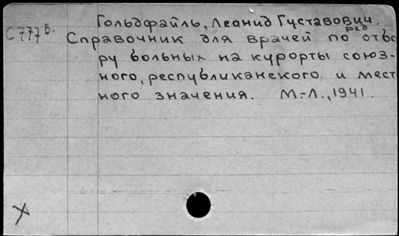 Гольдфайль, Леонид Густавович.
С777Б.
ред.
Справочник для врачей по отбо
ру больных на курорты союз-
ного, республиканского и мест
ного значения. М.-Л., 1941.
X